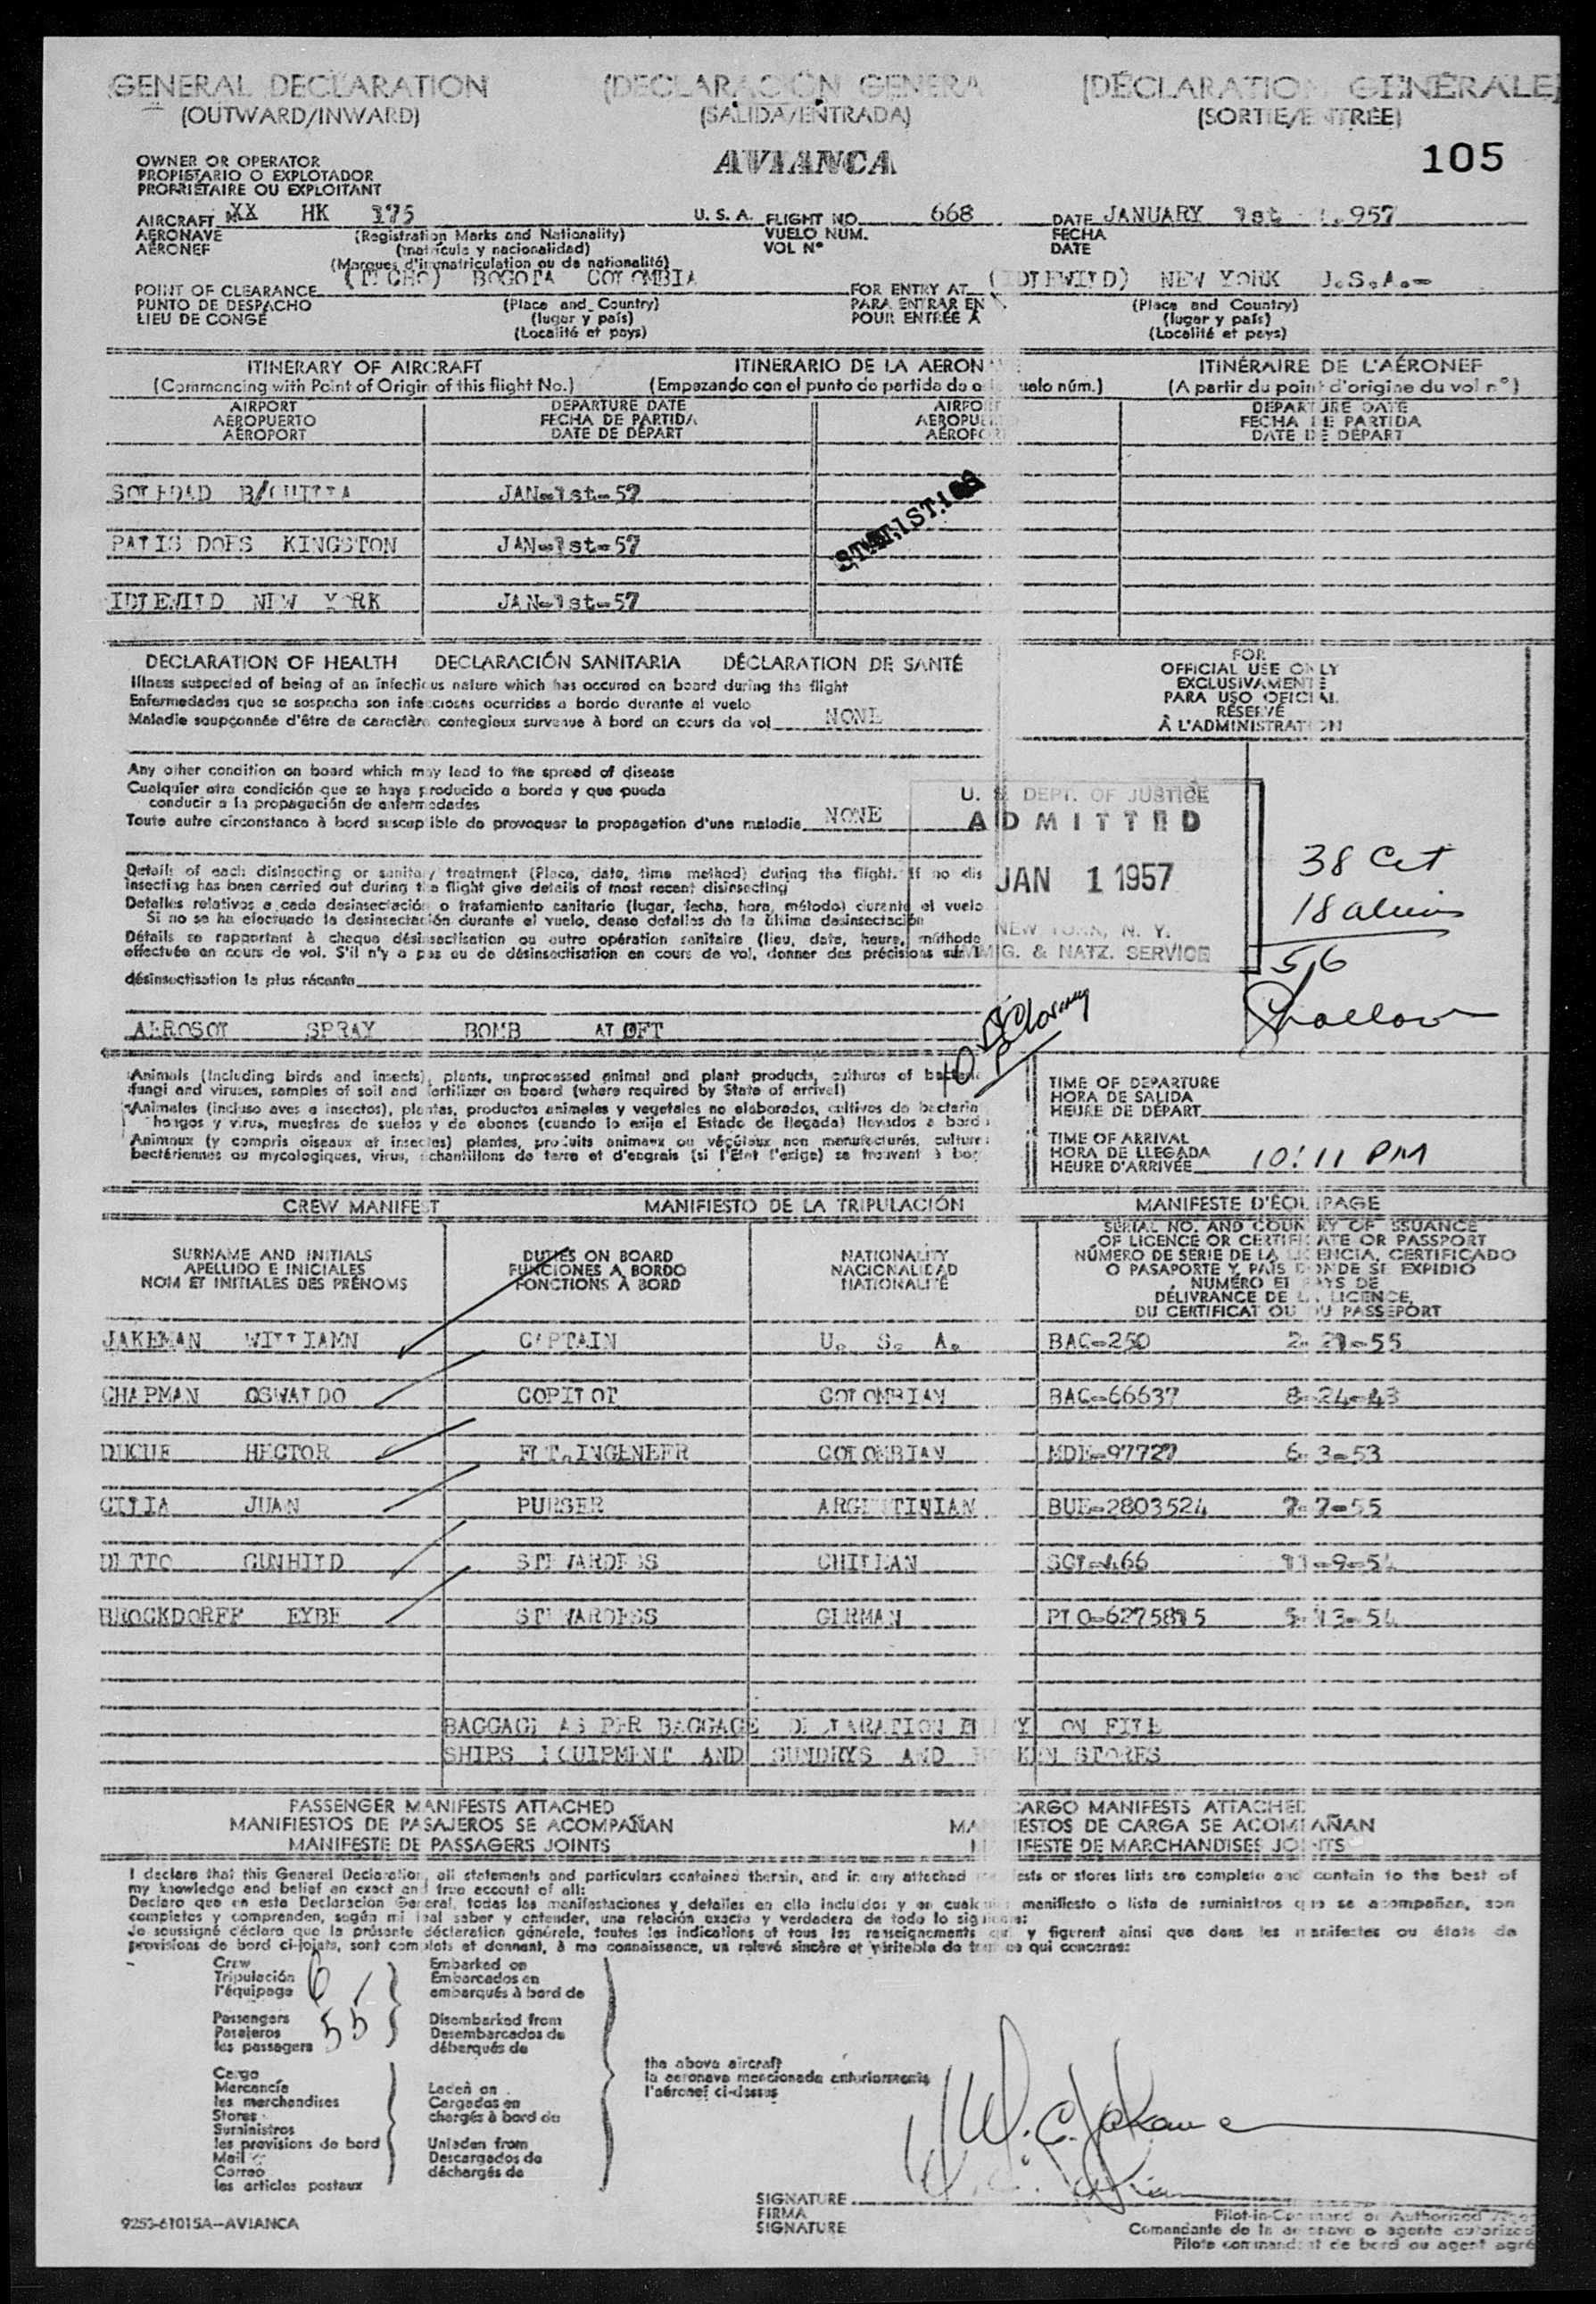 GENERAL DECLARATION (DECLARACIÓN GENERA (DÉCLARATION GÉNÉRALE)
(OUTWARD/INWARD) (SALIDA/ENTRADA) (SORTIE/ENTRÉE)
OWNER OR OPERATOR AVIANCA 105
PROPIETARIO O EXPLOTADOR
PROPRIÉTAIRE OU EXPLOITANT
AIRCRAFT XX HK 175 U. S. A. FLIGHT NO. 668 DATE JANUARY 1st 1.957
AERONAVE (Registration Marks and Nationality) VUELO NUM. FECHA
AÉRONEF (matrícula y nacionalidad) VOL N° DATE
(Marques d'immatriculation ou de nationalité)
POINT OF CLEARANCE (TECHO) BOGOTA COLOMBIA FOR ENTRY AT (IDLEWILD) NEW YORK U.S.A.-
PUNTO DE DESPACHO (Place and Country) PARA ENTRAR EN (Place and Country)
LIEU DE CONGÉ (lugar y país) POUR ENTRÉE À (lugar y país)
(Localité et pays) (Localité et pays)
ITINERARY OF AIRCRAFT ITINERARIO DE LA AERON ITINÉRAIRE DE L'AÉRONEF
(Commencing with Point of Origin of this flight No.) (Empezando con el punto de partida de uelo núm.) (A partir du point d'origine du vol n°)
AIRPORT DEPARTURE DATE AIRPORT DEPARTURE DATE
AEROPUERTO FECHA DE PARTIDA AEROPUE FECHA DE PARTIDA
AÉROPORT DATE DE DÉPART AÉROPOR DATE DE DÉPART
SOLEDAD B/QUILLA JAN-1st-57
STATISTICS
PALISDOES KINGSTON JAN-1st-57
IDLEWILD NEW YORK JAN-1st-57
DECLARATION OF HEALTH DECLARACIÓN SANITARIA DÉCLARATION DE SANTÉ
FOR
OFFICIAL USE ONLY
EXCLUSIVAMENTE
PARA USO OFICIAL
RÉSERVÉ
À L'ADMINISTRATION
Illness suspected of being of an infectious nature which has occured on board during the flight
Enfermedades que se sospecha son infecciosas ocurridas a bordo durante el vuelo
Maladie soupçonnée d'être de caractère contagieux survenue à bord en cours de vol NONE
Any other condition on board which may lead to the spread of disease
Cualquier otra condición que se haya producido a bordo y que pueda
conducir a la propagación de enfermedades
Toute autre circonstance à bord susceptible de provoquer la propagation d'une maladie NONE
U. S. DEPT. OF JUSTICE
ADMITTED
JAN 1 1957
NEW YORK, N. Y.
IMMIG. & NATZ. SERVICE
38 Cit
18 aliens
56
Details of each disinsecting or sanitary treatment (Place, date, time method) during the flight. If no dis
insecting has been carried out during the flight give details of most recent disinsecting
Detalles relativos a cada desinsectación o tratamiento sanitario (lugar, fecha, hora, método) durante el vuelo
Si no se ha efectuado la desinsectación durante el vuelo, dense detalles de la última desinsectación
Détails se rapportant à chaque désinsectisation ou autre opération sanitaire (lieu, date, heure, méthode
effectuée en cours de vol. S'il n'y a pas eu de désinsectisation en cours de vol, donner des précisions sur
désinsectisation la plus récente
AEROSOL SPRAY BOMB ALOFT
Animals (including birds and insects), plants, unprocessed animal and plant products, cultures of bacteria
fungi and viruses, samples of soil and fertilizer on board (where required by State of arrival)
Animales (incluso aves e insectos), plantas, productos animales y vegetales no elaborados, cultivos de bacteria
hongos y virus, muestras de suelos y de abonos (cuando lo exija el Estado de llegada) llevados a bord
Animaux (y compris oiseaux et insectes) plantes, produits animaux ou végétaux non manufacturés, culture
bactériennes ou mycologiques, virus, échantillons de terre et d'engrais (si l'État l'exige) se trouvant à bor
TIME OF DEPARTURE
HORA DE SALIDA
HEURE DE DÉPART
TIME OF ARRIVAL
HORA DE LLEGADA
HEURE D'ARRIVÉE 10:11 PM
CREW MANIFEST MANIFIESTO DE LA TRIPULACIÓN MANIFESTE D'ÉQUIPAGE
SURNAME AND INITIALS DUTIES ON BOARD NATIONALITY SERIAL NO. AND COUNTRY OF ISSUANCE
APELLIDO E INICIALES FUNCIONES A BORDO NACIONALIDAD OF LICENCE OR CERTIFICATE OR PASSPORT
NOM ET INITIALES DES PRÉNOMS FONCTIONS À BORD NATIONALITÉ NÚMERO DE SERIE DE LA LICENCIA, CERTIFICADO
O PASAPORTE Y PAIS DONDE SE EXPIDIO
NUMÉRO ET PAYS DE
DÉLIVRANCE DE LA LICENCE,
DU CERTIFICAT OU DU PASSEPORT
JAKEMAN WILLIAMN CAPTAIN U. S. A. BAC-250 2-21-55
CHAPMAN OSWALDO COPILOT COLOMBIAN BAC-66637 8-24-43
DUCUE HECTOR FLT.INGENEER COLOMBIAN MDE-97727 6-3-53
GILIA JUAN PURSER ARGENTINIAN BUE-2803524 7-7-55
GUNHILD STEWARDESS CHILEAN SCL-466 11-9-54
BROCKDORFF EYBE STEWARDESS GERMAN PLO-6275815 5-13-54
BAGGAGE AS PER BAGGAGE DECLARATION ENTRY ON FILE
SHIPS EQUIPMENT AND SUNDRYS AND BROKEN STORES
PASSENGER MANIFESTS ATTACHED CARGO MANIFESTS ATTACHED
MANIFIESTOS DE PASAJEROS SE ACOMPAÑAN MANIFIESTOS DE CARGA SE ACOMPAÑAN
MANIFESTE DE PASSAGERS JOINTS MANIFESTE DE MARCHANDISES JOINTS
I declare that this General Declaration, all statements and particulars contained therein, and in any attached manifests or stores lists are complete and contain to the best of
my knowledge and belief an exact and true account of all:
Declaro que en esta Declaración General, todas las manifestaciones y detalles en ella incluidos y en cualquier manifiesto o lista de suministros que se acompañan, son
completos y comprenden, según mi leal saber y entender, una relación exacta y verdadera de todo lo siguiente:
Je soussigné déclare que la présente déclaration générale, toutes les indications et tous les renseignements qui y figurent ainsi que dans les manifestes ou états de
provisions de bord ci-joints, sont complets et donnent, à ma connaissance, un relevé sincère et véritable de tout ce qui concerne:
Crew Embarked on
Tripulación 6 Embarcados en
l'équipage embarqués à bord de
Passengers Disembarked from
Pasajeros 55 Desembarcados de
les passagers débarqués de
the above aircraft
la aeronave mencionada anteriormente
l'aéronef ci-dessus
Cargo
Mercancía Laden on
les merchandises Cargados en
Stores chargés à bord du
Suministros
les provisions de bord Unladen from
Mail Descargados de
Correo déchargés de
les articles postaux
W. C. Jakeman
SIGNATURE
FIRMA
SIGNATURE
Pilot-in-Command or Authorized Agen
Comandante de la aeronave o agente autorizad
Pilote commandant de bord ou agent agré
9253-61015A—AVIANCA